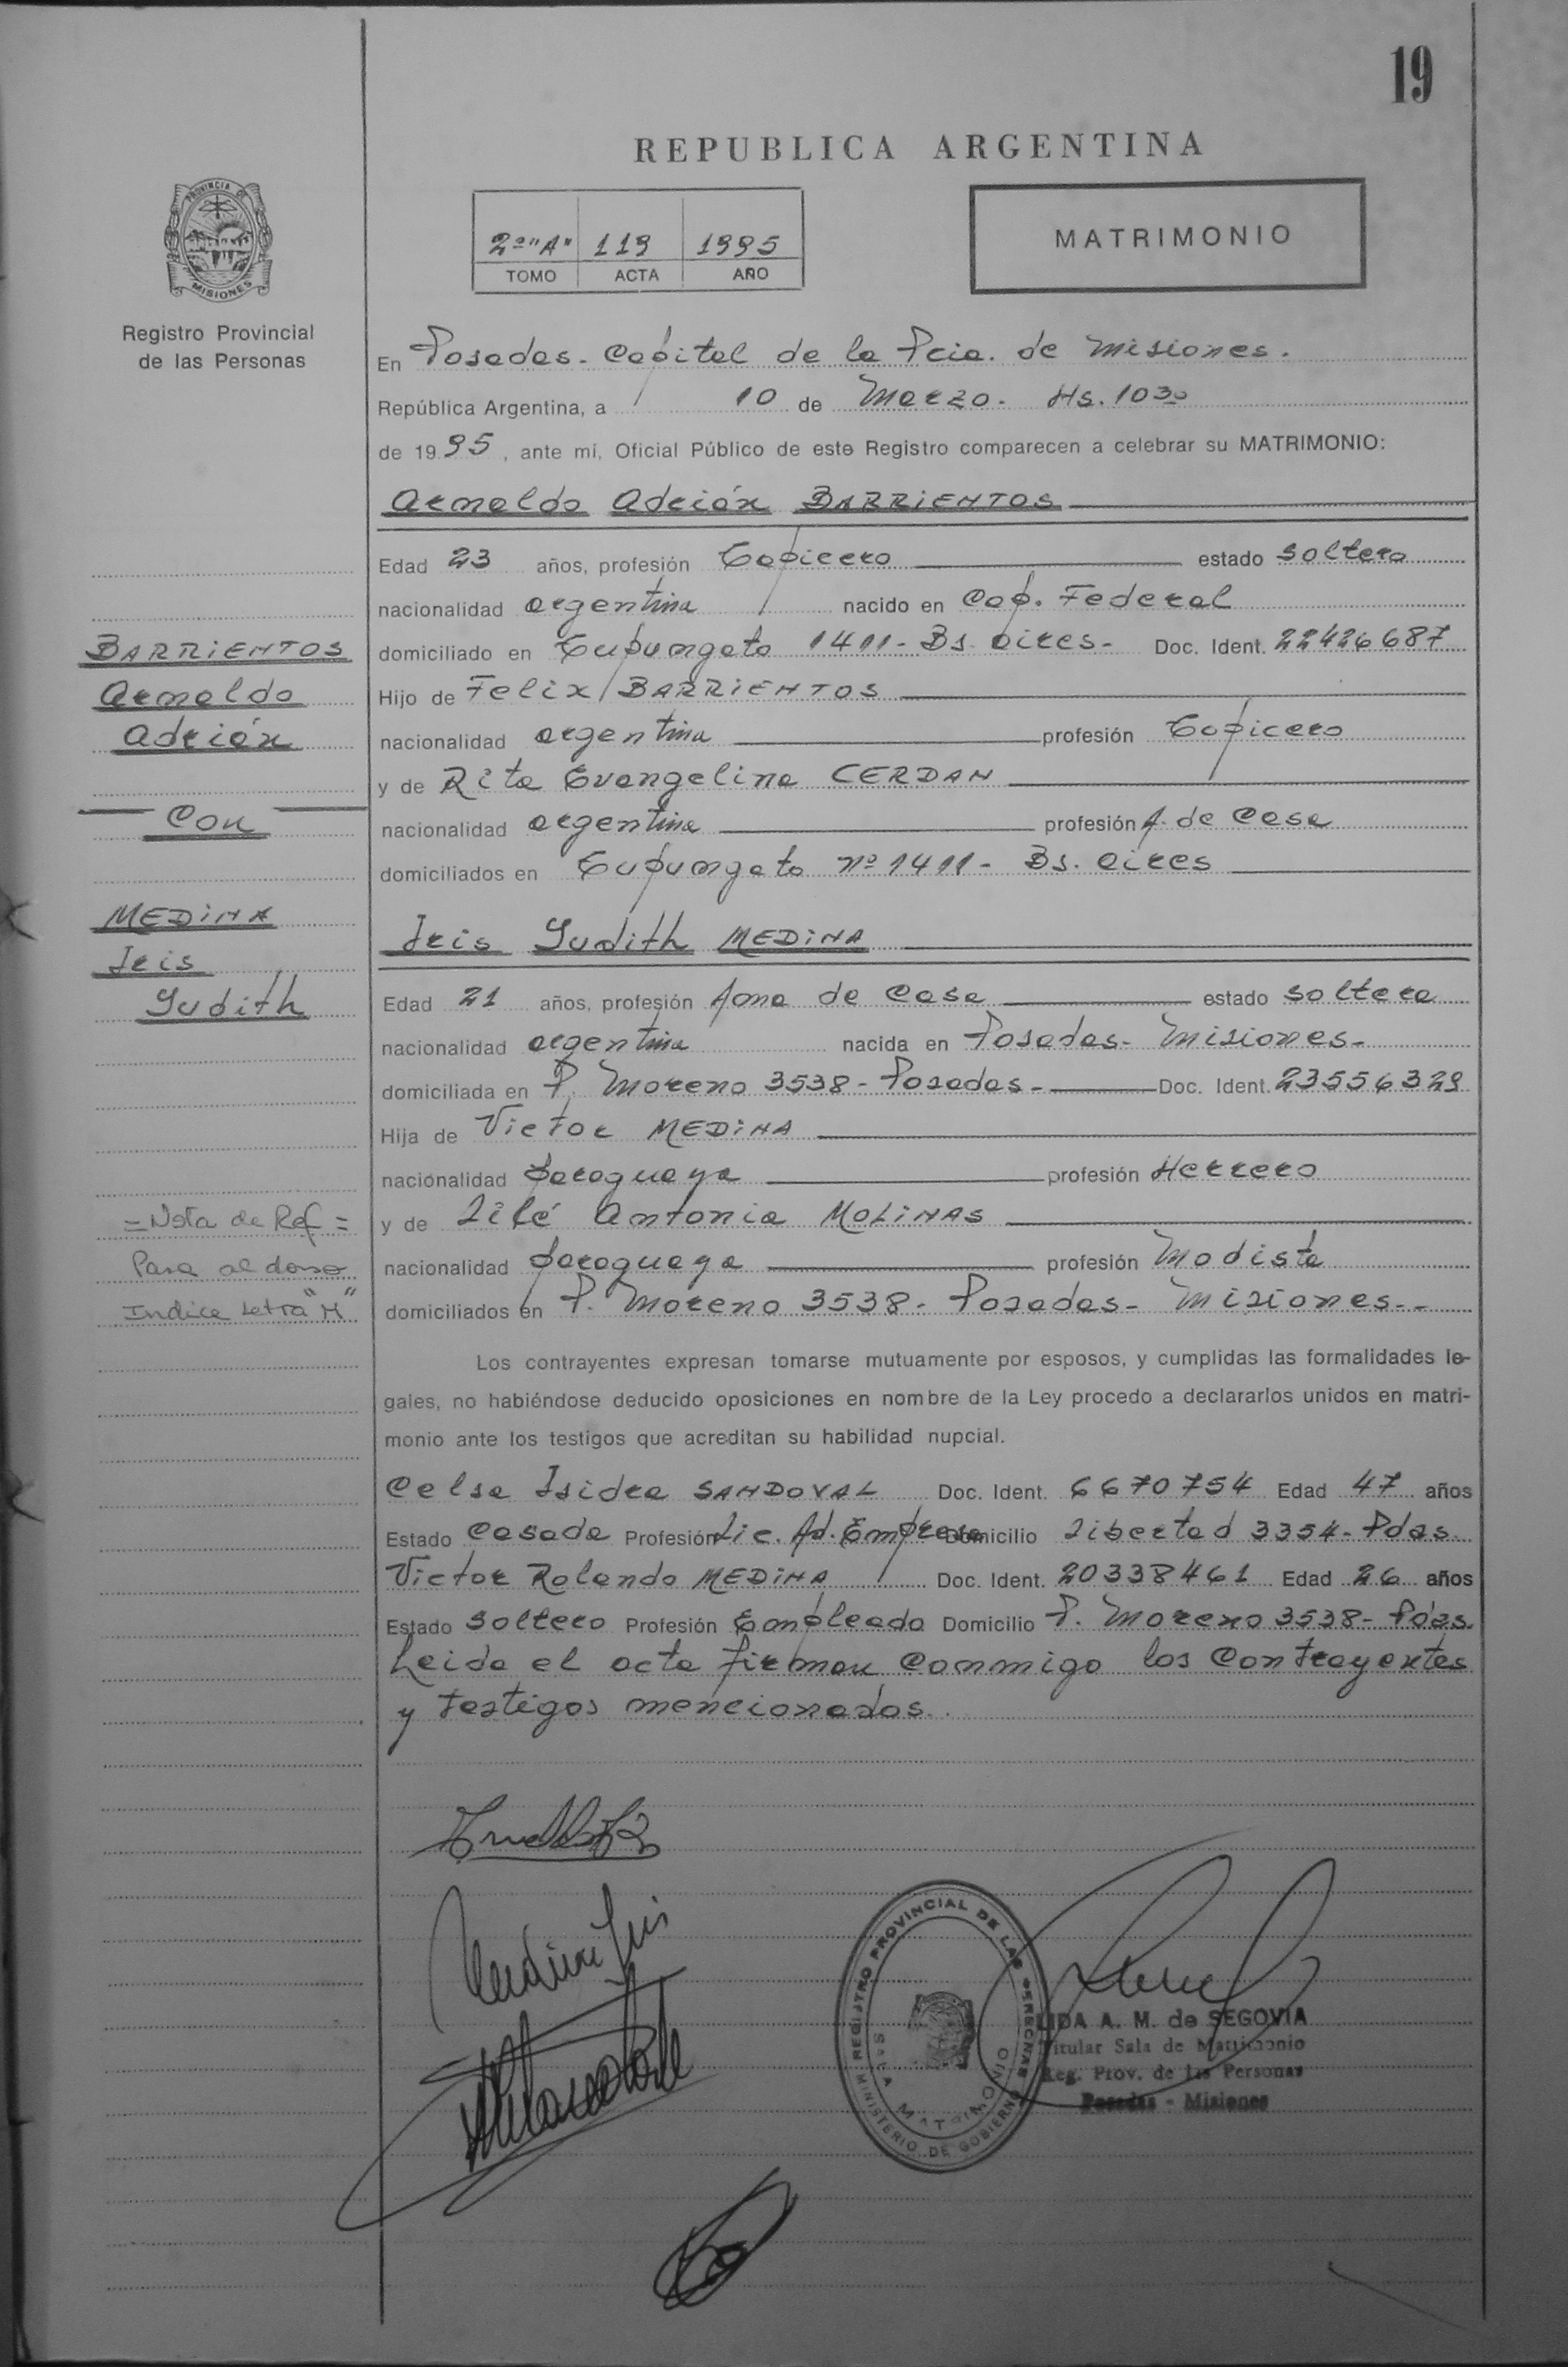 19
REPUBLICA ARGENTINA
2º "A" 119 1995
TOMO ACTA AÑO
MATRIMONIO
PROVINCIA DE
MISIONES
Registro Provincial
de las Personas
En Posadas - Capital de la Pcia. de Misiones.
República Argentina, a 10 de Marzo - Hs. 10 30
de 1995, ante mí, Oficial Público de este Registro comparecen a celebrar su MATRIMONIO:
Arnaldo Adrián BARRIENTOS
Edad 23 años, profesión Tapicero estado soltero
nacionalidad argentina nacido en Cap. Federal
domiciliado en Tupungato 1411 - Bs. Aires - Doc. Ident. 22426687
Hijo de Felix BARRIENTOS
nacionalidad argentina profesión Tapicero
y de Rita Evangelina CERDAN
nacionalidad argentina profesión A. de Casa
domiciliados en Tupungato nº 1411 - Bs. Aires
Iris Judith MEDINA
Edad 21 años, profesión Ama de Casa estado soltera
nacionalidad argentina nacida en Posadas - Misiones -
domiciliada en P. Moreno 3538 - Posadas - Doc. Ident. 23556329
Hija de Victor MEDINA
nacionalidad paraguaya profesión Herrero
y de Lilé Antonia MOLINAS
nacionalidad paraguaya profesión Modista
domiciliados en P. Moreno 3538 - Posadas - Misiones - -
Los contrayentes expresan tomarse mutuamente por esposos, y cumplidas las formalidades le-
gales, no habiéndose deducido oposiciones en nombre de la Ley procedo a declararlos unidos en matri-
monio ante los testigos que acreditan su habilidad nupcial.
Celsa Isidra SANDOVAL Doc. Ident. 6670754 Edad 47 años
Estado Casada Profesión Lic. Ad. Empresa Domicilio Libertad 3354 - Pdas.
Victor Rolando MEDINA Doc. Ident. 20338461 Edad 26 años
Estado soltero Profesión Empleado Domicilio P. Moreno 3538 - Pdas.
Leida el acta firman conmigo los Contrayentes
y testigos mencionados.
BARRIENTOS
Arnaldo
Adrián
Con
MEDINA
Iris
Judith
= Nota de Ref =
Pasa al dorso
Indice Letra "M"
Medina Iris
REGISTRO PROVINCIAL DE LAS PERSONAS
MINISTERIO DE GOBIERNO
SALA MATRIMONIO
LIDA A. M. de SEGOVIA
Titular Sala de Matrimonio
Reg. Prov. de las Personas
Posadas - Misiones